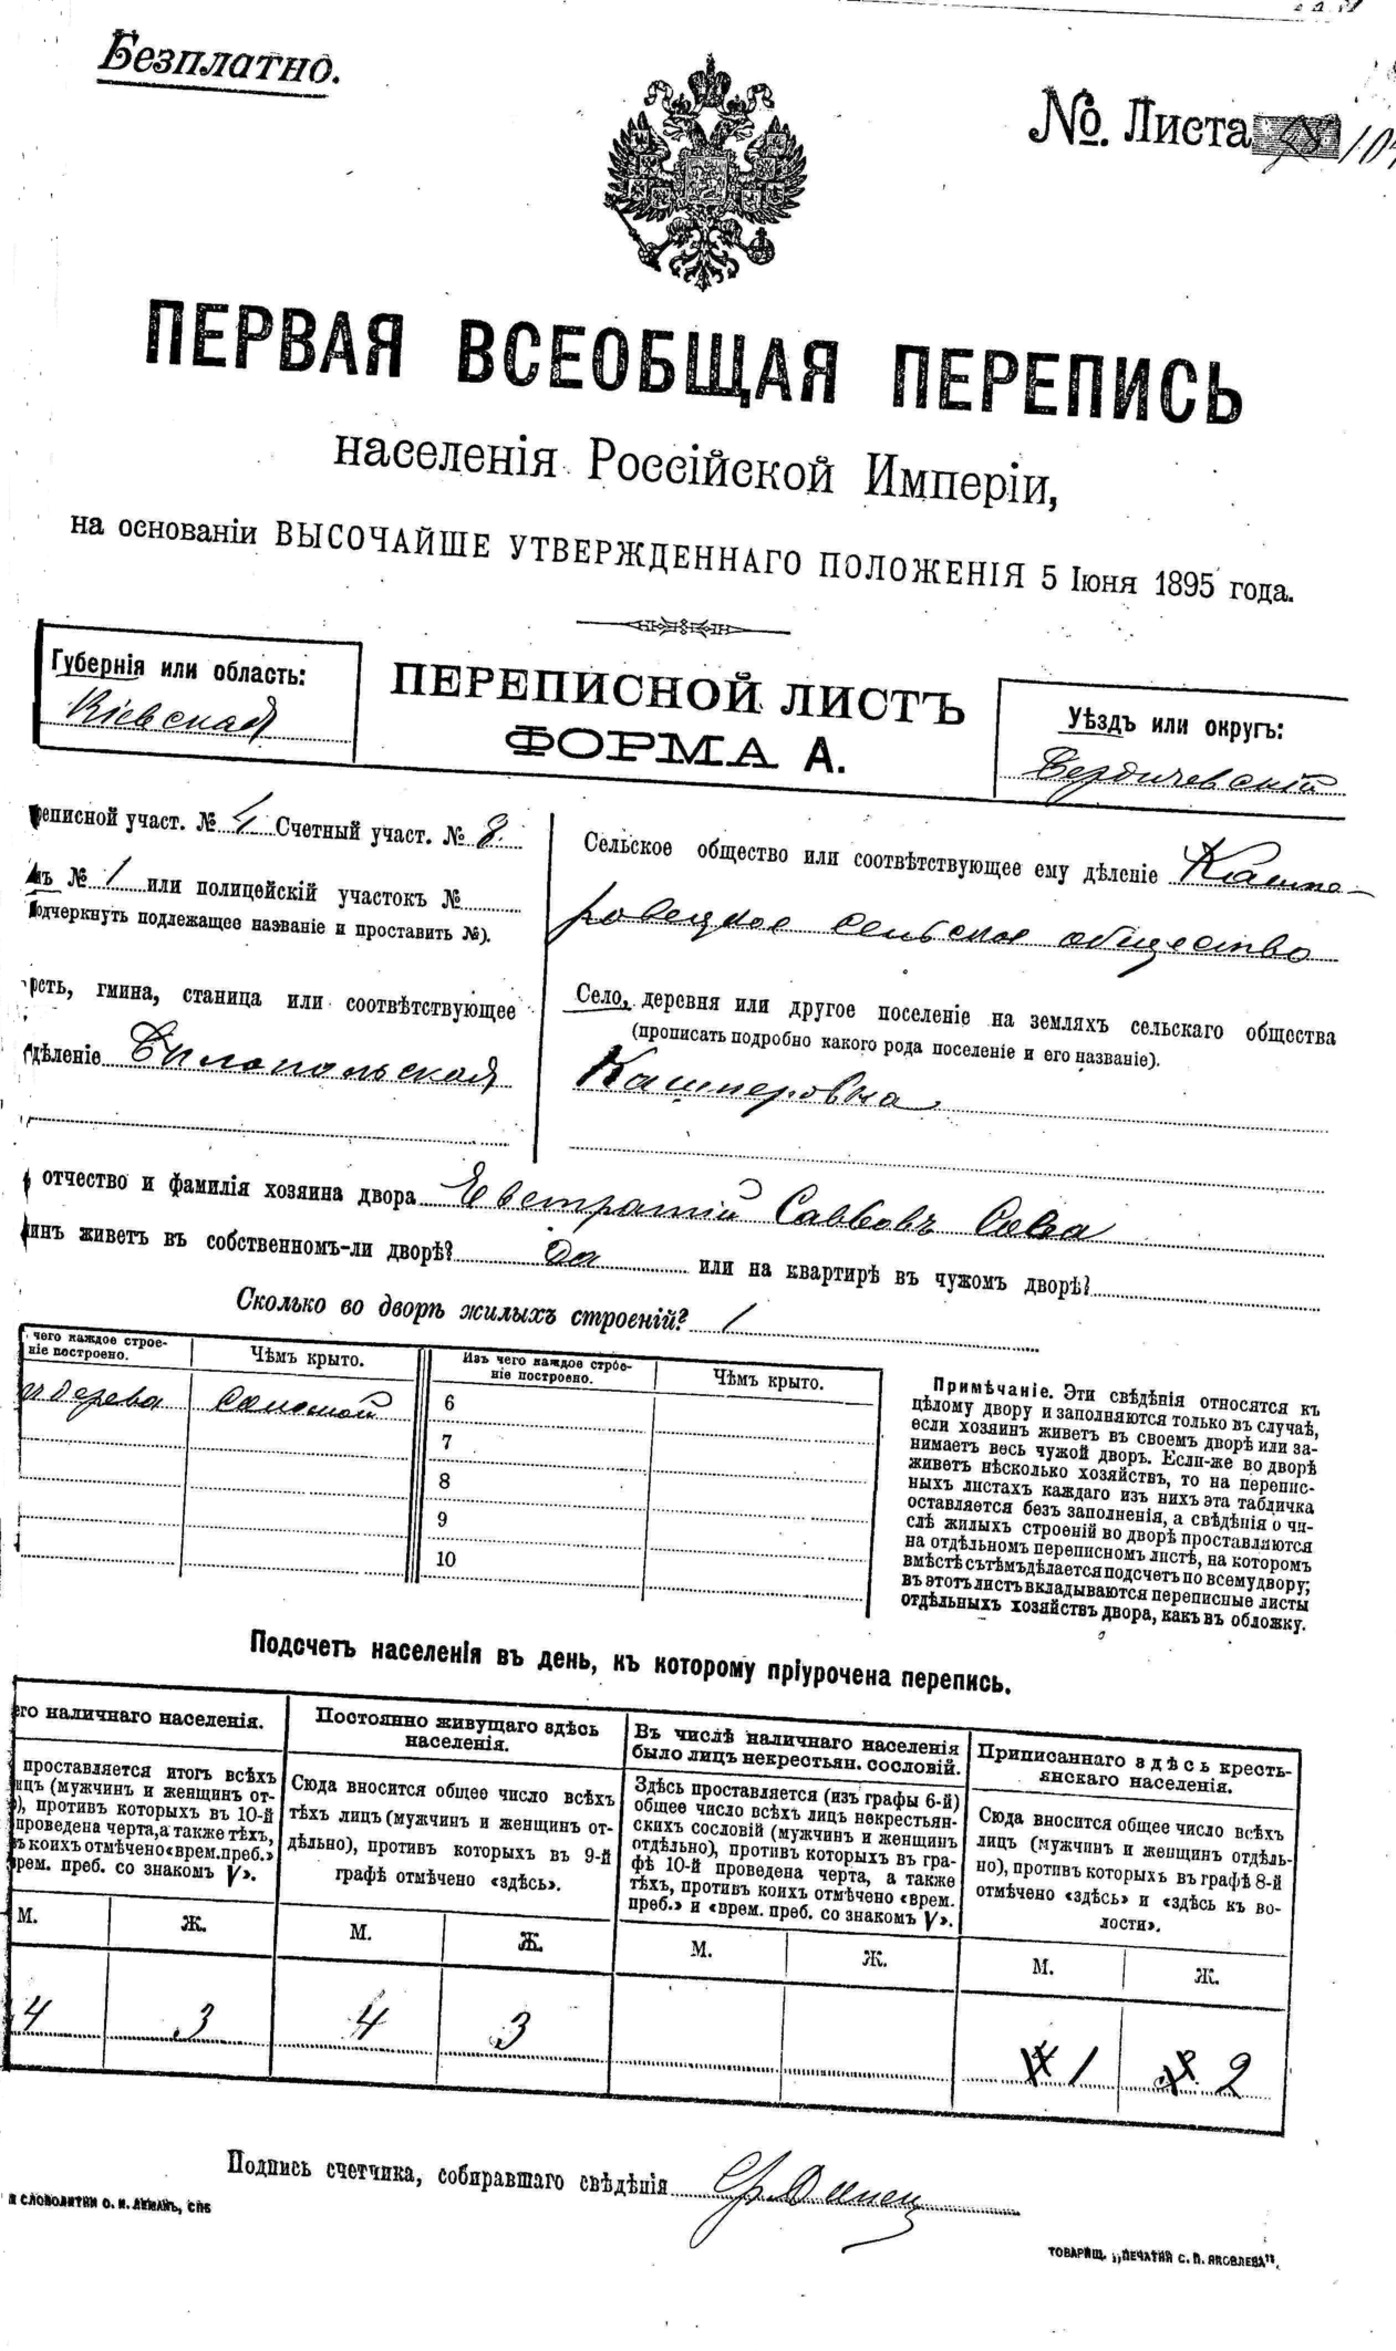 Безплатно.
№. Листа
ПЕРВАЯ ВСЕОБЩАЯ ПЕРЕПИСЬ
населенія Россійской Имперіи,
на основаніи ВЫСОЧАЙШЕ УТВЕРЖДЕННАГО ПОЛОЖЕНІЯ 5 Іюня 1895 года.
Губернія или область:
Кіевская
ПЕРЕПИСНОЙ ЛИСТЪ
ФОРМА А.
Уѣздъ или округъ:
Бердичевскій
реписной участ. № 4 Счетный участ. № 8.
нъ № 1 или полицейскій участокъ №
одчеркнуть подлежащее названіе и проставить №).
Сельское общество или соотвѣтствующее ему дѣленіе Кашпе-
ровецкое сельское общество
ость, гмина, станица или соотвѣтствующее
дѣленіе Билопольская
Село, деревня или другое поселеніе на земляхъ сельскаго общества
(прописать подробно какого рода поселеніе и его названіе).
Кашперовка
отчество и фамилія хозяина двора Евстратій Саввовъ Сова
инъ живетъ въ собственномъ-ли дворѣ? Да или на квартирѣ въ чужомъ дворѣ?
Сколько во дворѣ жилыхъ строеній? 1
чего каждое строе-
ніе построено.
Чѣмъ крыто.
Изъ чего каждое строе-
ніе построено.
Чѣмъ крыто.
дерева соломой
6
7
8
9
10
Примѣчаніе. Эти свѣдѣнія относятся къ
цѣлому двору и заполняются только въ случаѣ,
если хозяинъ живетъ въ своемъ дворѣ или за-
нимаетъ весь чужой дворъ. Если-же во дворѣ
живетъ нѣсколько хозяйствъ, то на перепис-
ныхъ листахъ каждаго изъ нихъ эта табличка
оставляется безъ заполненія, а свѣдѣнія о чи-
слѣ жилыхъ строеній во дворѣ проставляются
на отдѣльномъ переписномъ листѣ, на которомъ
вмѣстѣ съ тѣмъ дѣлается подсчетъ по всему двору;
въ этотъ листъ вкладываются переписные листы
отдѣльныхъ хозяйствъ двора, какъ въ обложку.
Подсчетъ населенія въ день, къ которому пріурочена перепись.
его наличнаго населенія.
проставляется итогъ всѣхъ
ицъ (мужчинъ и женщинъ от-
), противъ которыхъ въ 10-й
проведена черта, а также тѣхъ,
ъ коихъ отмѣчено «врем. преб.»
врем. преб. со знакомъ V».
Постоянно живущаго здѣсь
населенія.
Сюда вносится общее число всѣхъ
тѣхъ лицъ (мужчинъ и женщинъ от-
дѣльно), противъ которыхъ въ 9-й
графѣ отмѣчено «здѣсь».
Въ числѣ наличнаго населенія
было лицъ некрестьян. сословій.
Здѣсь проставляется (изъ графы 6-й)
общее число всѣхъ лицъ некрестьян-
скихъ сословій (мужчинъ и женщинъ
отдѣльно), противъ которыхъ въ гра-
фѣ 10-й проведена черта, а также
тѣхъ, противъ коихъ отмѣчено «врем.
преб.» и «врем. преб. со знакомъ V».
Приписаннаго здѣсь кресть-
янскаго населенія.
Сюда вносится общее число всѣхъ
лицъ (мужчинъ и женщинъ отдѣль-
но), противъ которыхъ въ графѣ 8-й
отмѣчено «здѣсь» и «здѣсь къ во-
лости».
М. Ж. М. Ж. М. Ж. М. Ж.
4 3 4 3 1 2
Подпись счетчика, собиравшаго свѣдѣнія
и словолитни О. И. Леманъ, СПБ
ТОВАРИЩ. „ПЕЧАТНЯ С. П. ЯКОВЛЕВА“.